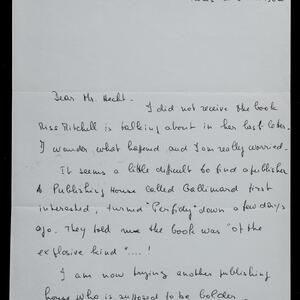 Dear Mr. Hecht.
I did not receive the book
Miss Mitchell is talking about in her last letter.
I wonder what hapened and I am really worried.
It seems a little difficult to find a publisher
A Publishing House called Gallimard first
interested, turned "Perfidy" down a few days
ago. They told me the book was "of the
explosive kind"....!
I am now trying another publishing
house who is supposed to be bolder.